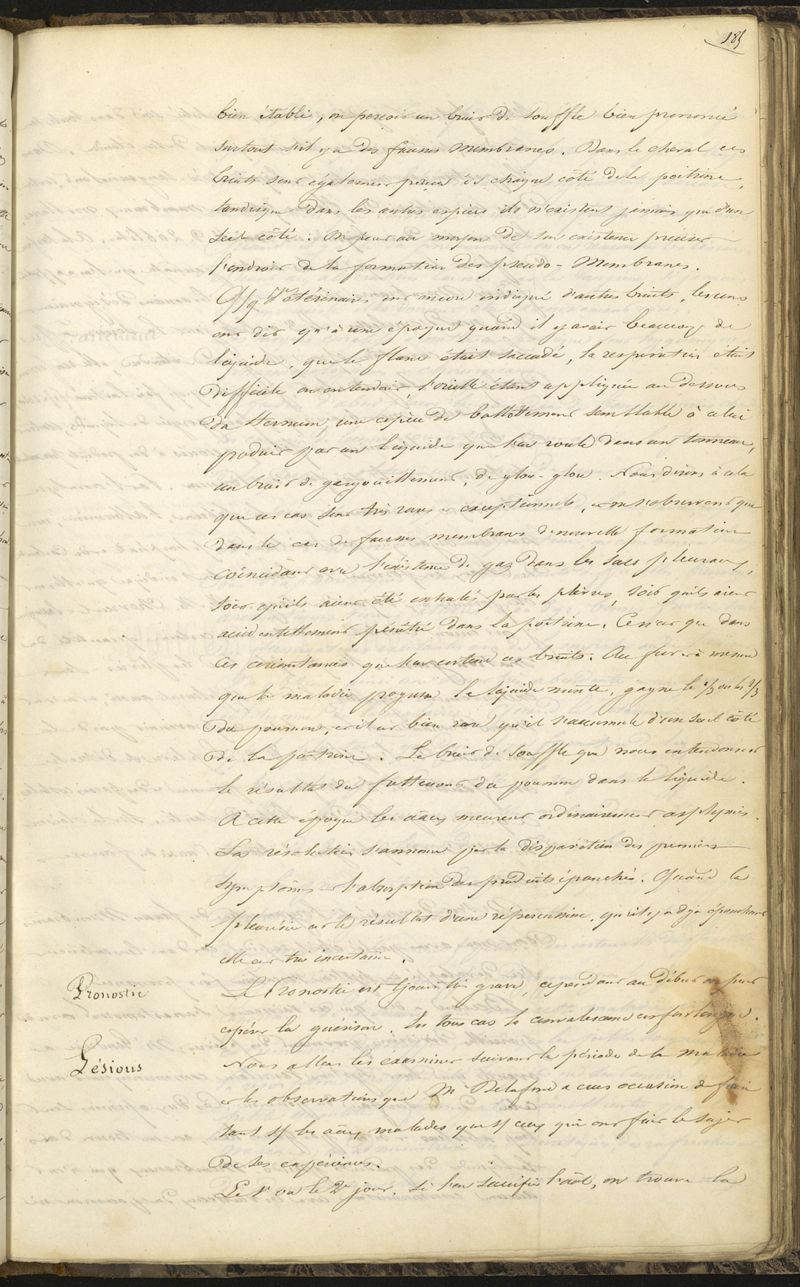 185
bien établi, on perçoit un bruit de souffle bien prononcé
surtout s'il y a des fausses membranes. Dans le cheval ces
bruits sont également perçus de chaque côté de la poitrine,
tandisque dans les autres espèces ils n'existent jamais que d'un
seul côté. On peut au moyen de son existence préciser
l'endroit de la formation des pseudo-membranes.
Qlq Vétérinaires ont encore indiqué d'autres bruits, les uns
ont dit qu'à une époque quand il y avait beaucoup de
liquide, que le flanc était saccadé, la respiration était
difficile on entendait, l'oreille étant appliquée au dessous
du sternum, une espèce de ballottement semblable à celui
produit par un liquide que l'on roule dans un tonneau,
un bruit de gargouillement, de glou-glou. Nous dirons à cela
que ces cas sont très rares et exceptionnels, et on n'observent que
dans le cas de fausses membranes de nouvelle formation
coïncidant avec l'existence de gaz dans les sacs pleuraux,
soit qu'ils aient été exhalés par les plèvres, soit qu'ils aient
accidentellement pénétré dans la poitrine. Ce n'est que dans
ces circonstances que l'on entend ces bruits. Au fur et à mesure
que la maladie progresse le liquide monte, gagne le 1/3 ou les 2/3
du poumon, et il est bien rare qu'il s'accumule d'un seul côté
de la poitrine. Le bruit de souffle que nous entendons est
le résultat du flottement du poumon dans le liquide.
A cette époque les aãux meurent ordinairement asphyxiés.
La résolution s'annonce par la disparition des premiers
symptômes et l'absorption des produits épanchés. Quand la
pleurésie est le résultat d'une répercussion, qu'il y a déjà épanchement
elle est très incertaine.
Pronostic Le Pronostic est toujours très grave, cependant au début on peut
espérer la guérison. En tous cas la convalescence est fort longue.
Lésions Nous allons les examiner suivant la période de la maladie
et les observations que Mr Delafond a eues occasion de faire
tant s/ les aãux malades que s/ ceux qui ont fait le sujet
de ses expériences.
Le 1er ou le 2e jour, si l'on sacrifie l'aãl, on trouve la